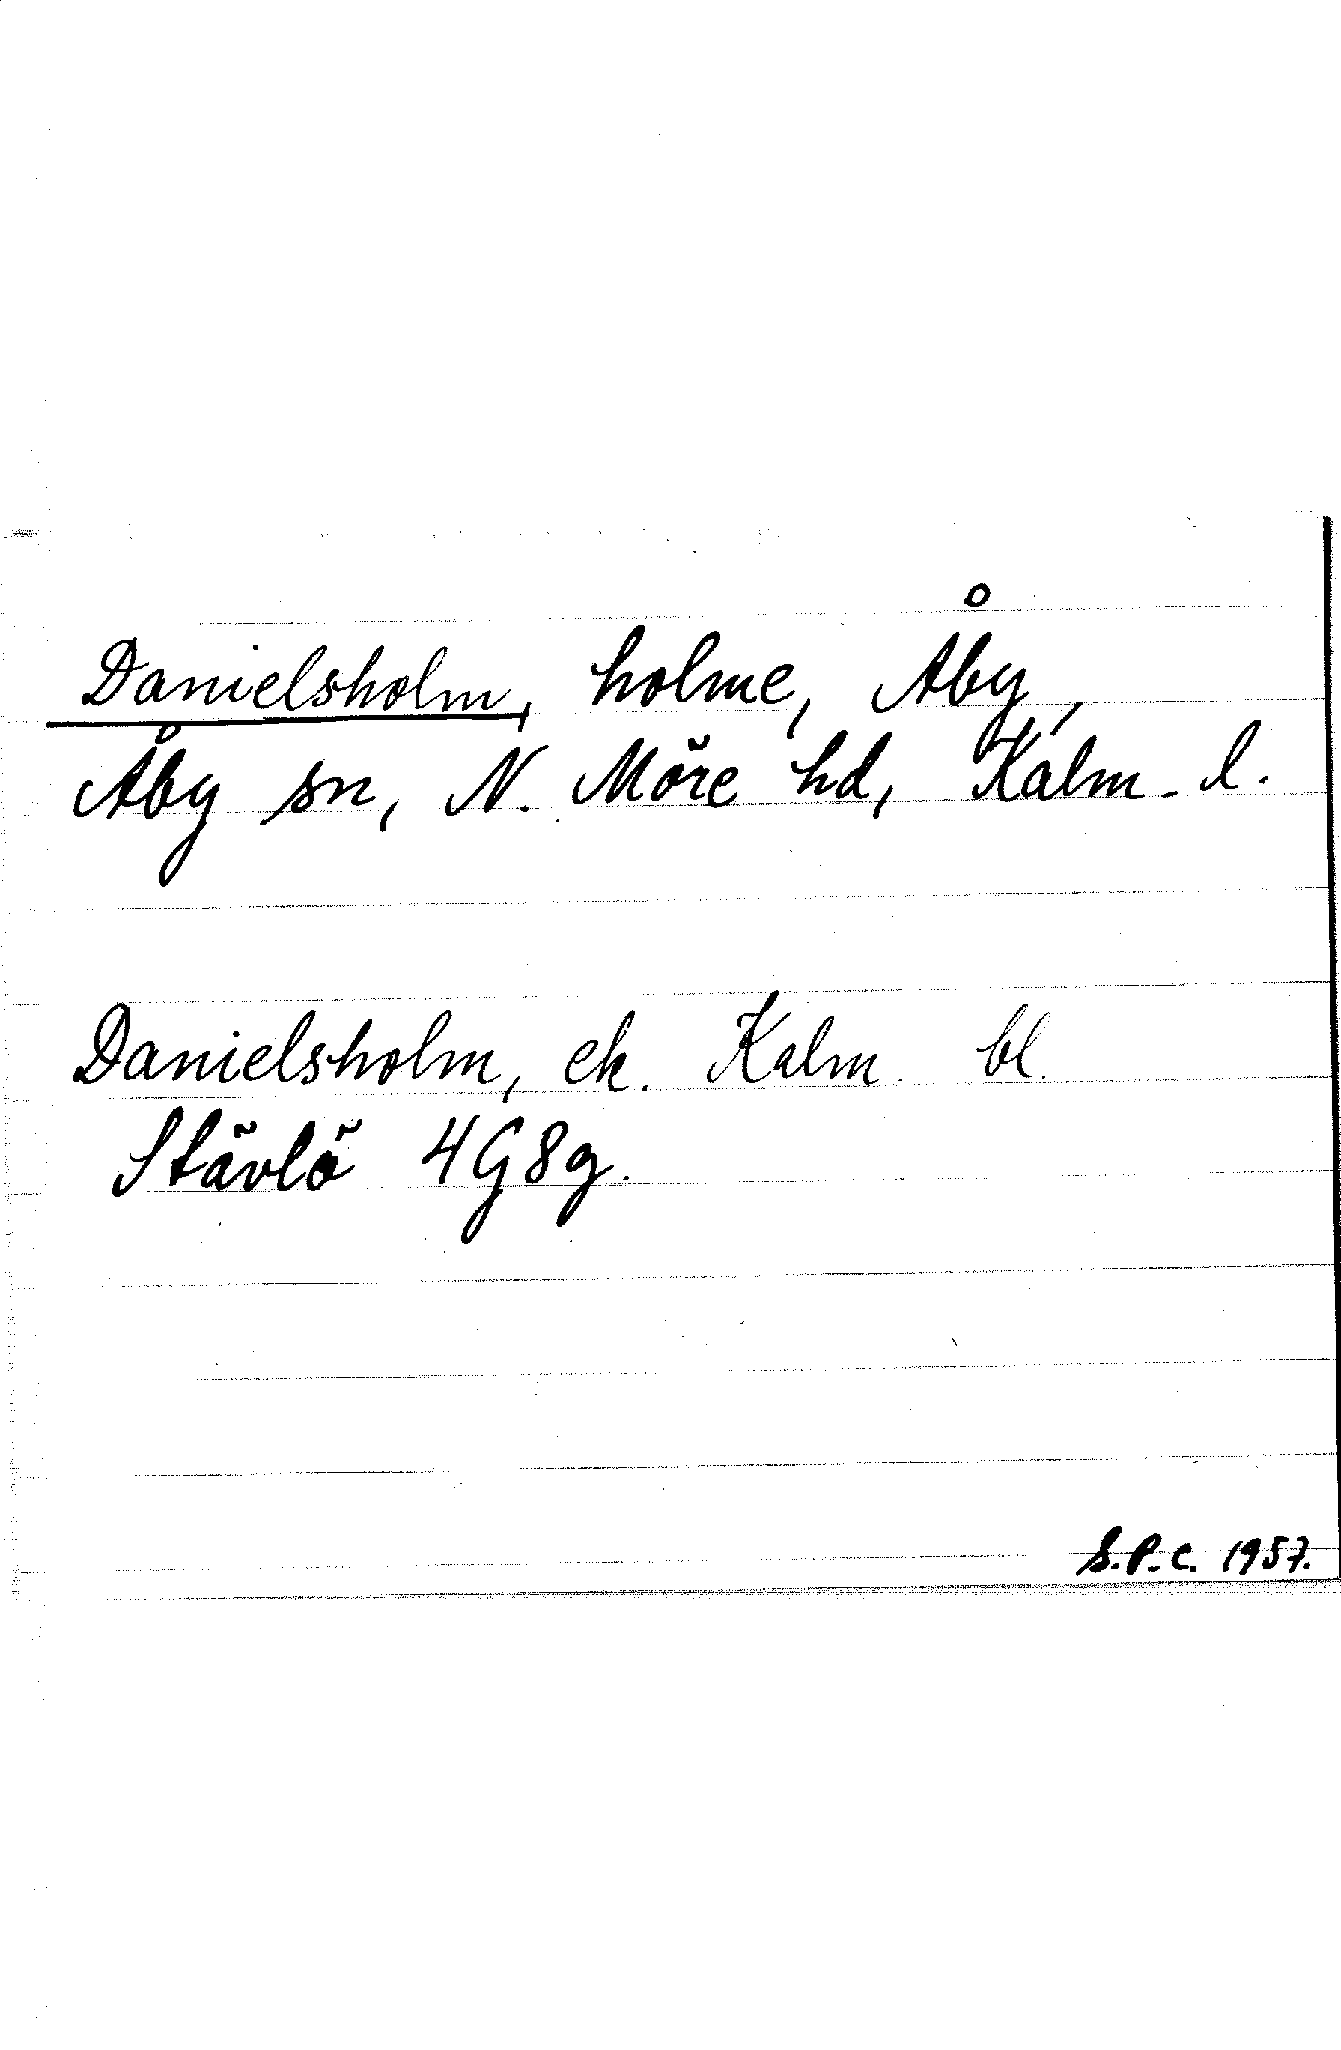 Danielsholm, holme, Åby,
Åby sn, N. Möre hd, Kalm. l.
Danielsholm, ek. Kalm. bl.
Stävlö 4G8g.
S.P.C. 1957.